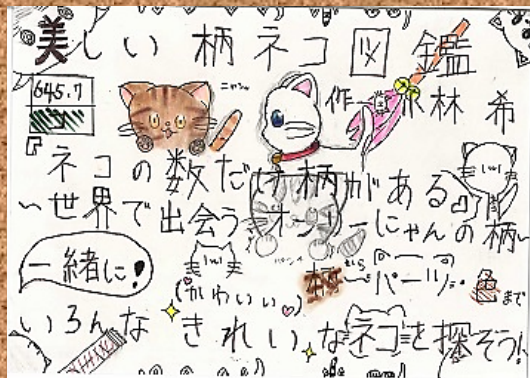 美しい柄ネコ図鑑
645.7
ニャ〜ン
作 小林 希
『ネコの数だけ柄がある』
〜世界で出会うオンリーにゃんの柄〜
一緒に!
(かわいい)
柄から〜パーツ、色まで
いろんなきれいなネコを探そう!